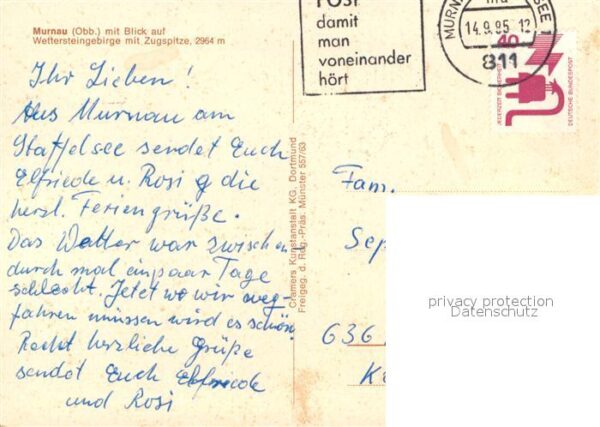 Murnau (Obb.) mit Blick auf
Wettersteingebirge mit Zugspitze, 2964 m
Ihr Lieben!
Aus Murnau am
Staffelsee sendet Euch
Elfriede u. Rosi die
herzl. Feriengrüße.
Das Wetter war zwischen
durch mal ein paar Tage
schlecht. Jetzt wo wir weg-
fahren müssen wird es schön.
Recht herzliche Grüße
sendet Euch Elfriede
und Rosi
Cramers Kunstanstalt KG, Dortmund
Freigeg. d. Reg.-Präs. Münster 557/63
POST
damit
man
voneinander
hört
MURNAU
SEE 1
14.9.85. 12
811
40
JEDERZEIT SICHERHEIT
DEUTSCHE BUNDESPOST
Fam.
Sep
636
privacy protection
Datenschutz